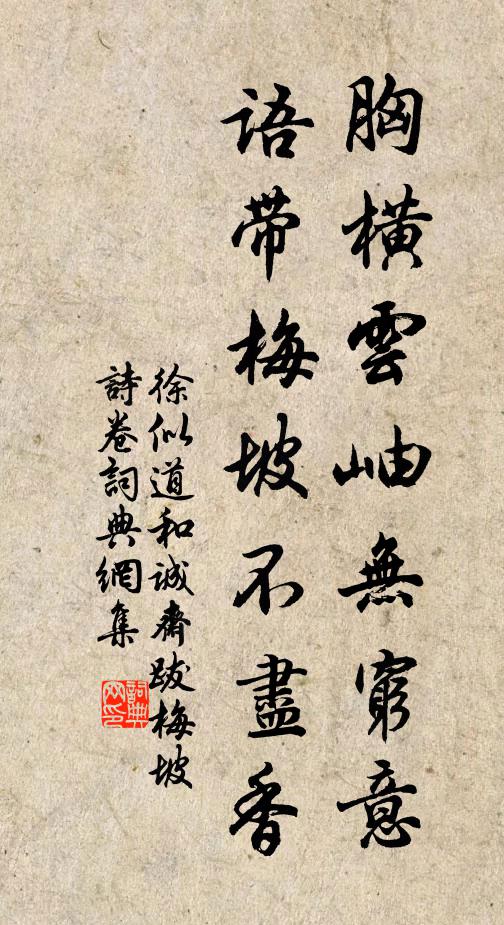 胸橫雲岫無窮意
語帶梅坡不盡香
徐似道和誠齋跋梅坡
詩卷詞典網集
詞典
网印